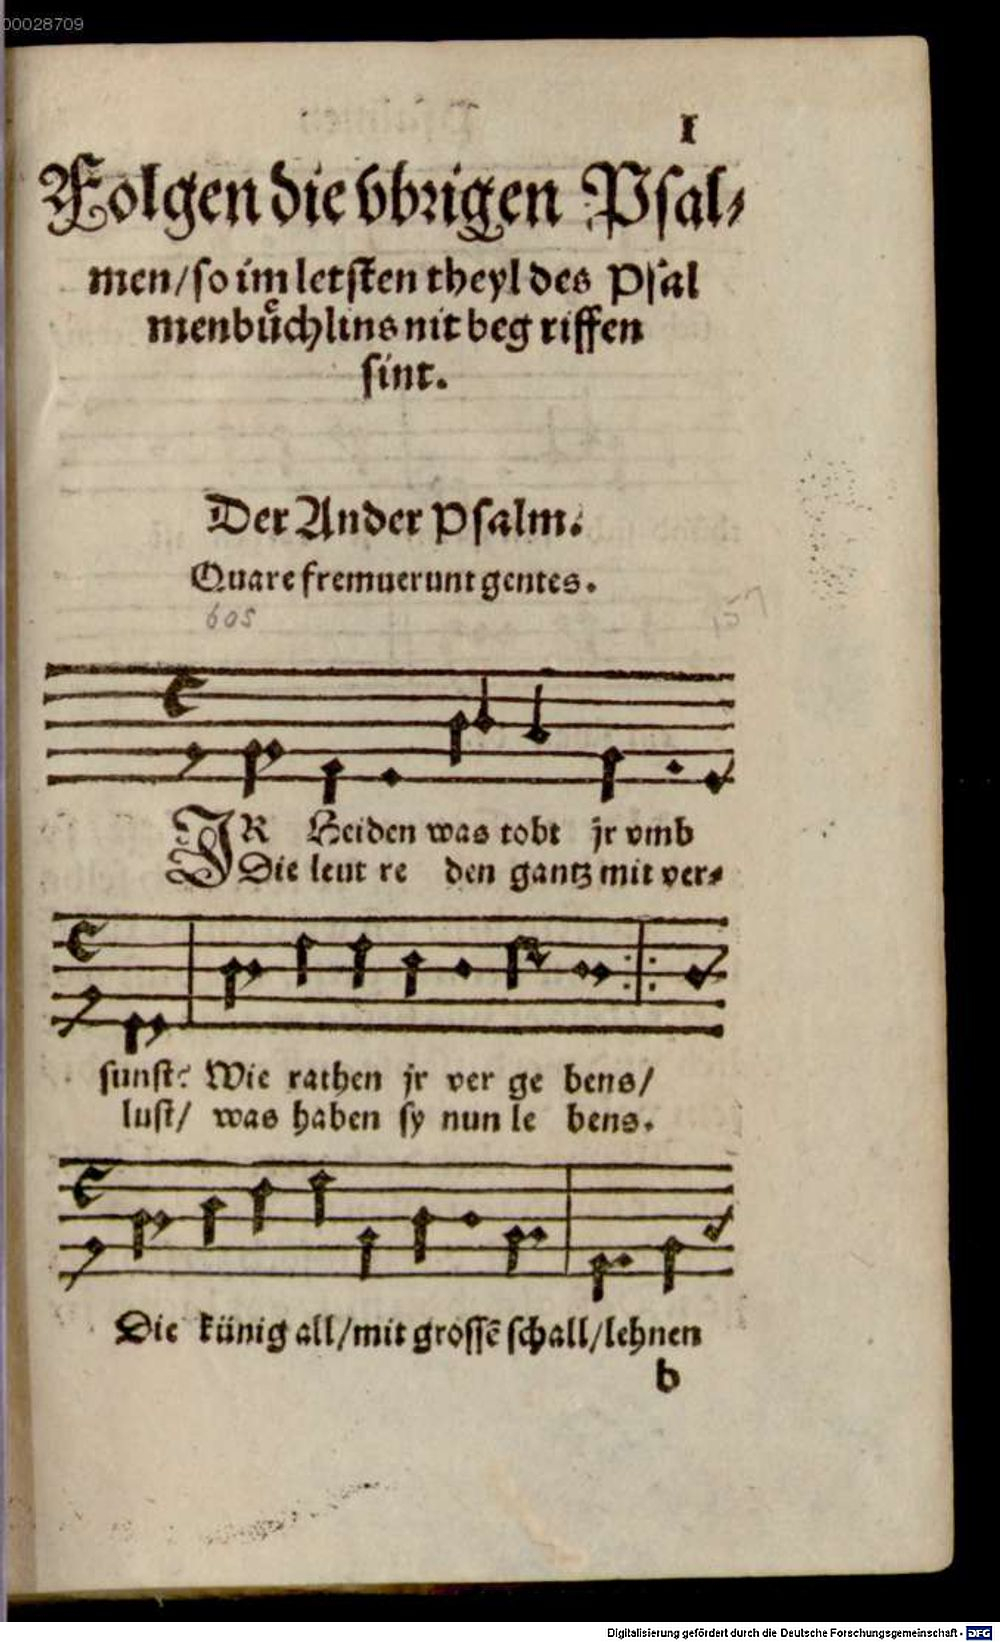 00028709
I
Folgen die vbrigen Psal⸗
men/so im letsten theyl des Psal
menbuͤchlins nit beg riffen
sint.
Der Ander Psalm.
Quare fremuerunt gentes.
605
IR Heiden was tobt jr vmb
Die leut re den gantz mit ver⸗
sunst? Wie rathen jr ver ge bens/
lust/ was haben sy nun le bens.
Die künig all/mit grossē schall/lehnen
b
Digitalisierung gefördert durch die Deutsche Forschungsgemeinschaft - DFG